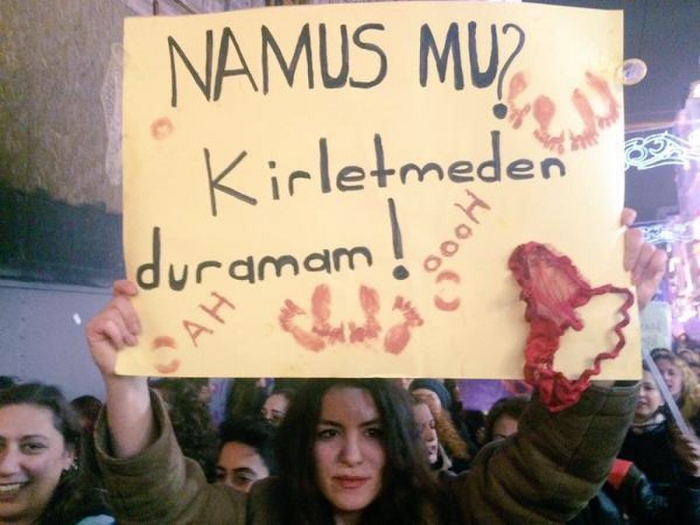 NAMUS MU?
Kirletmeden
duramam!
OOOH
AH